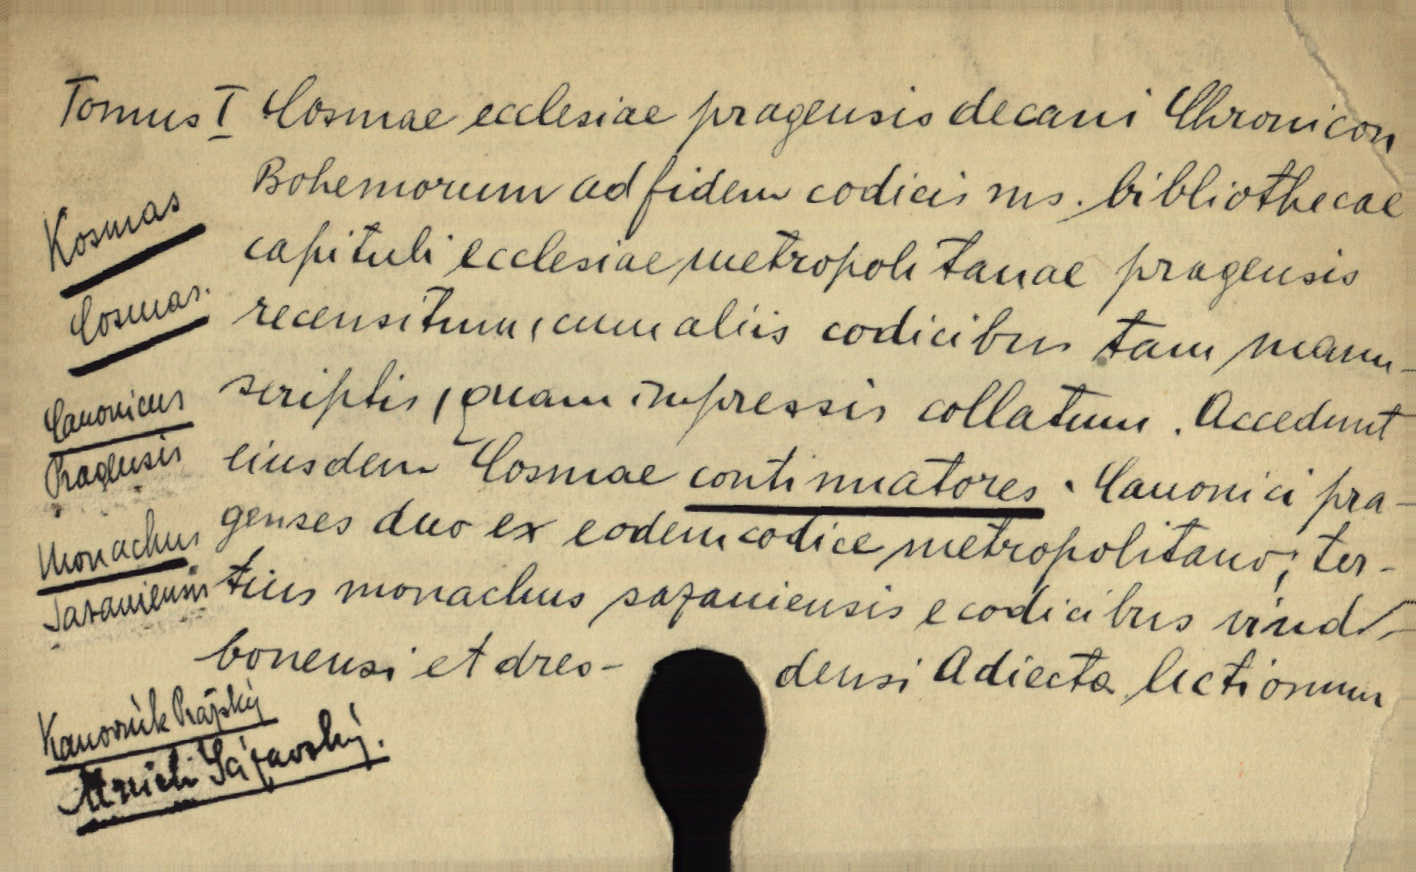 Tomus I Cosmae ecclesiae pragensis decani Chronicon
Bohemorum ad fidem codicis ms. bibliothecae
capituli ecclesiae metropolitanae pragensis
recensitum, cum aliis codicibus tam manu-
scriptis, quam impressis collatum. Accedunt
eiusdem Cosmae continuatores. Canonici pra-
genses duo ex eodem codice metropolitano; ter-
tius monachus sazaviensis e codicibus vind/-
bonensi et dres- densi Adiecta lectionum
Kosmas
Cosmas.
Canonicus
Pragensis
Monachus
Sazaviensis
Kanovník Pražský
Mnich Sázavský.